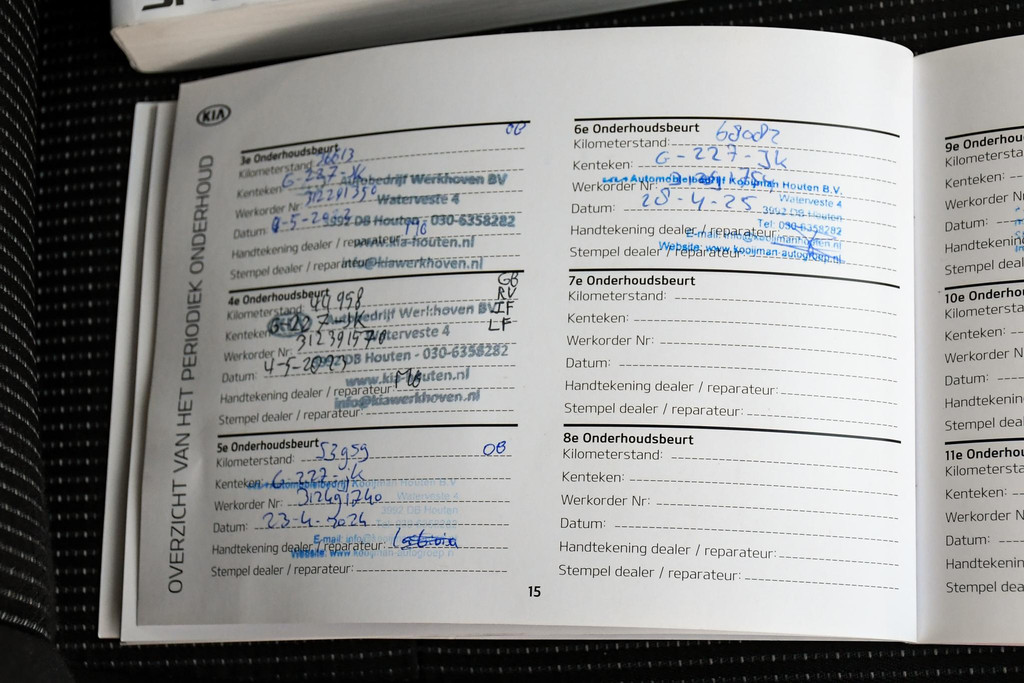 KIA
OVERZICHT VAN HET PERIODIEK ONDERHOUD
3e Onderhoudsbeurt
OB
Kilometerstand:
Kenteken: G-227-JK
Autobedrijf Werkhoven BV
Werkorder Nr:
Waterveste 4
Datum:
3992 DB Houten - 030-6358282
Handtekening dealer / reparateur:
www.kia-houten.nl
Stempel dealer / reparateur:
info@kiawerkhoven.nl
4e Onderhoudsbeurt
GB
RV
IF
LF
Kilometerstand: 44958
Kenteken: G-227-JK
Autobedrijf Werkhoven BV
Werkorder Nr: 312391570
Waterveste 4
Datum: 4-5-2023
3992 DB Houten - 030-6358282
www.kia-houten.nl
Handtekening dealer / reparateur:
info@kiawerkhoven.nl
Stempel dealer / reparateur:
5e Onderhoudsbeurt
Kilometerstand: 53959
OB
Kenteken: G-227-JK
Automobielbedrijf Kooijman Houten B.V.
Werkorder Nr: 312491740
Waterveste 4
3992 DB Houten
Datum: 23-4-2024
Handtekening dealer / reparateur:
Website: www.kooijman-autogroep.nl
Stempel dealer / reparateur:
6e Onderhoudsbeurt
Kilometerstand: 68082
Kenteken: G-227-JK
Automobielbedrijf Kooijman Houten B.V.
Werkorder Nr:
Waterveste 4
Datum: 28-4-25
3992 DB Houten
Tel: 030-6358282
Handtekening dealer / reparateur:
E-mail: info@kooijmanhouten.nl
Stempel dealer / reparateur:
Website: www.kooijman-autogroep.nl
7e Onderhoudsbeurt
Kilometerstand:
Kenteken:
Werkorder Nr:
Datum:
Handtekening dealer / reparateur:
Stempel dealer / reparateur:
8e Onderhoudsbeurt
Kilometerstand:
Kenteken:
Werkorder Nr:
Datum:
Handtekening dealer / reparateur:
Stempel dealer / reparateur:
15
9e Onderhou
Kilometersta
Kenteken:
Werkorder N
Datum:
Handtekenin
Stempel deal
10e Onderho
Kilometersta
Kenteken:
Werkorder N
Datum:
Handtekenin
Stempel deal
11e Onderho
Kilometersta
Kenteken:
Werkorder N
Datum:
Handtekenin
Stempel dea